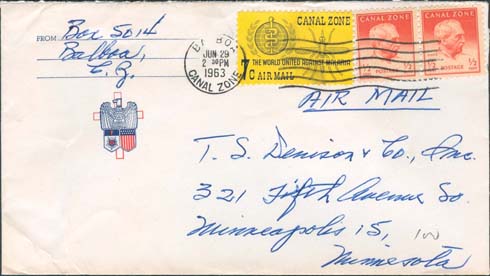 FROM Box 5014
Balboa,
C.Z.
BALBOA
JUN 29
2 30 PM
1963
CANAL ZONE
CANAL ZONE
THE WORLD UNITED AGAINST MALARIA
7c AIR MAIL
CANAL ZONE
½c POSTAGE ½
CANAL ZONE
POSTAGE ½c
AIR MAIL
T. S. Denison & Co., Inc.
321 Fifth Avenue So.
Minneapolis 15,
Minnesota